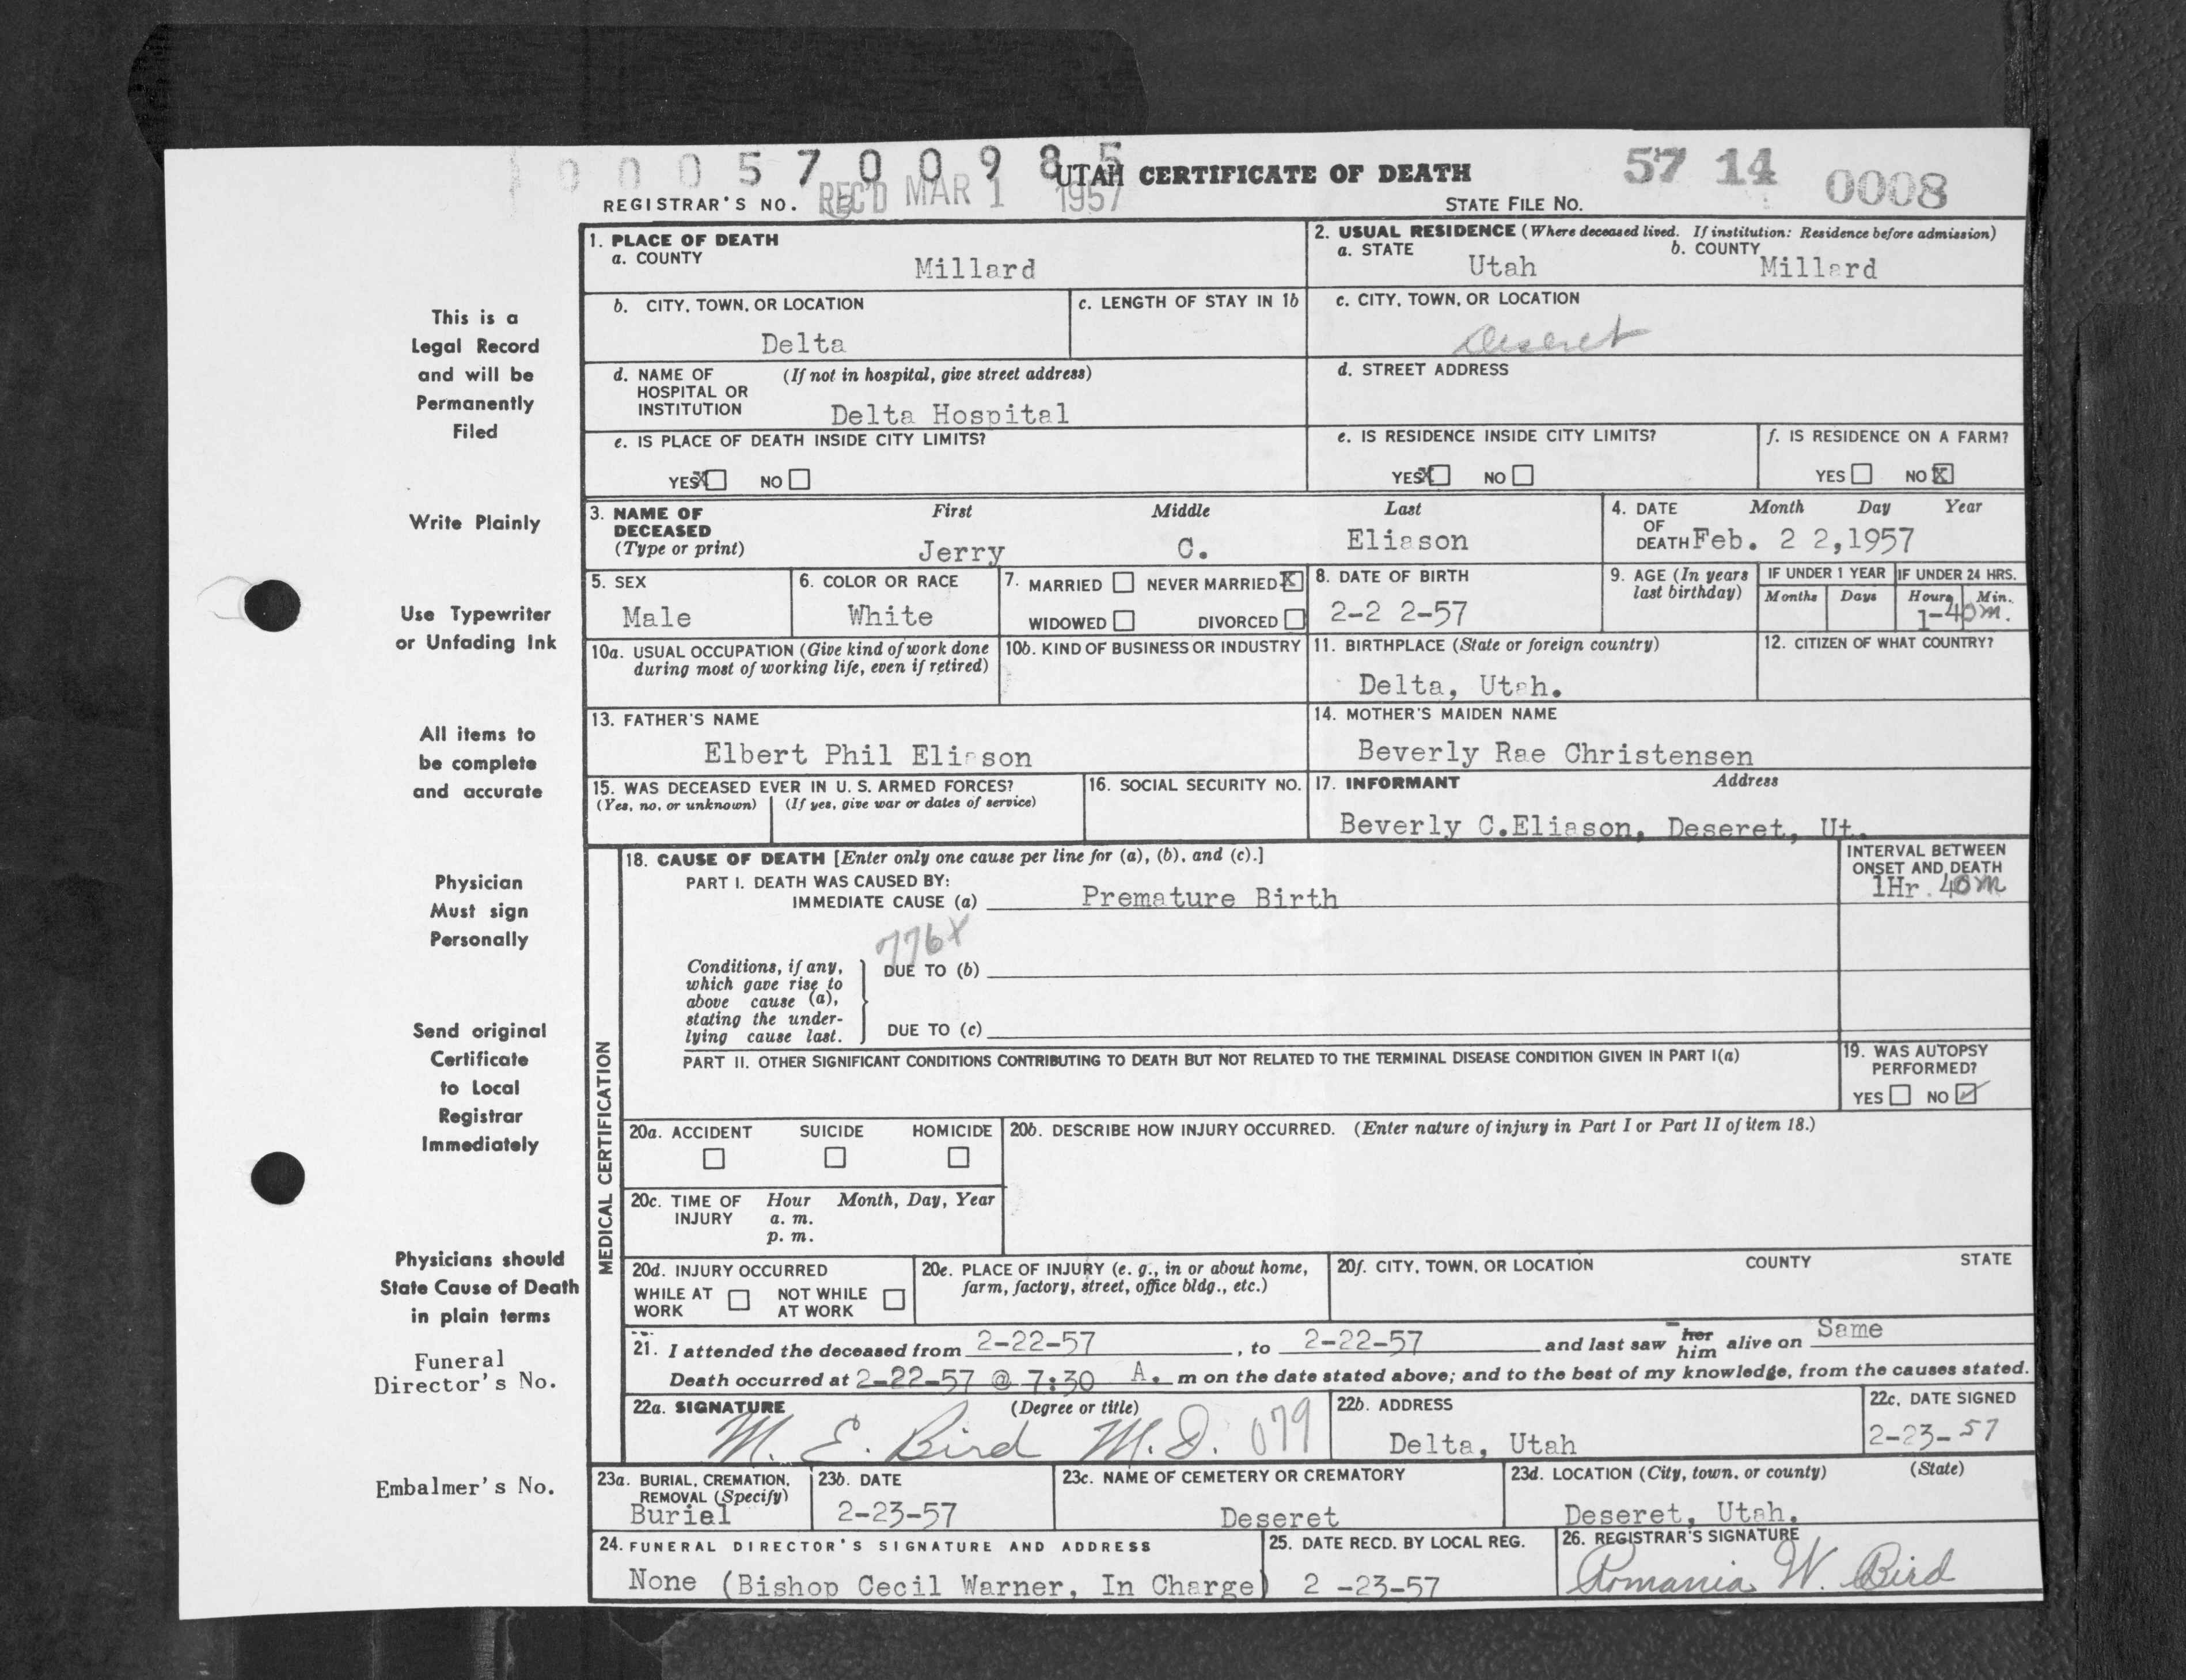 0 0 0 5 7 0 0 9 8 5
UTAH CERTIFICATE OF DEATH
57 14 0008
REGISTRAR'S NO. REC'D MAR 1 1957
STATE FILE NO.
This is a
Legal Record
and will be
Permanently
Filed
Write Plainly
Use Typewriter
or Unfading Ink
All items to
be complete
and accurate
Physician
Must sign
Personally
Send original
Certificate
to Local
Registrar
Immediately
Physicians should
State Cause of Death
in plain terms
Funeral
Director's No.
Embalmer's No.
1. PLACE OF DEATH
a. COUNTY
Millard
2. USUAL RESIDENCE (Where deceased lived. If institution: Residence before admission)
a. STATE Utah b. COUNTY Millard
b. CITY, TOWN, OR LOCATION
Delta
c. LENGTH OF STAY IN 1b
c. CITY, TOWN, OR LOCATION
Deseret
d. NAME OF HOSPITAL OR INSTITUTION (If not in hospital, give street address)
Delta Hospital
d. STREET ADDRESS
e. IS PLACE OF DEATH INSIDE CITY LIMITS?
YES X NO
e. IS RESIDENCE INSIDE CITY LIMITS?
YES X NO
f. IS RESIDENCE ON A FARM?
YES NO X
3. NAME OF DECEASED (Type or print)
First Middle Last
Jerry C. Eliason
4. DATE OF DEATH Month Day Year
Feb. 2 2,1957
5. SEX
Male
6. COLOR OR RACE
White
7. MARRIED NEVER MARRIED X
WIDOWED DIVORCED
8. DATE OF BIRTH
2-2 2-57
9. AGE (In years last birthday)
IF UNDER 1 YEAR IF UNDER 24 HRS.
Months Days Hours Min.
1-40m.
10a. USUAL OCCUPATION (Give kind of work done during most of working life, even if retired)
10b. KIND OF BUSINESS OR INDUSTRY
11. BIRTHPLACE (State or foreign country)
Delta, Utah.
12. CITIZEN OF WHAT COUNTRY?
13. FATHER'S NAME
Elbert Phil Eliason
14. MOTHER'S MAIDEN NAME
Beverly Rae Christensen
15. WAS DECEASED EVER IN U. S. ARMED FORCES?
(Yes, no, or unknown) (If yes, give war or dates of service)
16. SOCIAL SECURITY NO.
17. INFORMANT Address
Beverly C.Eliason, Deseret, Ut.
MEDICAL CERTIFICATION
18. CAUSE OF DEATH [Enter only one cause per line for (a), (b), and (c).]
PART I. DEATH WAS CAUSED BY:
IMMEDIATE CAUSE (a) Premature Birth
INTERVAL BETWEEN ONSET AND DEATH
1Hr. 40m
776X
Conditions, if any, which gave rise to above cause (a), stating the underlying cause last.
DUE TO (b)
DUE TO (c)
PART II. OTHER SIGNIFICANT CONDITIONS CONTRIBUTING TO DEATH BUT NOT RELATED TO THE TERMINAL DISEASE CONDITION GIVEN IN PART I(a)
19. WAS AUTOPSY PERFORMED?
YES NO ✓
20a. ACCIDENT SUICIDE HOMICIDE
20b. DESCRIBE HOW INJURY OCCURRED. (Enter nature of injury in Part I or Part II of item 18.)
20c. TIME OF INJURY Hour Month, Day, Year
a. m.
p. m.
20d. INJURY OCCURRED
WHILE AT WORK NOT WHILE AT WORK
20e. PLACE OF INJURY (e. g., in or about home, farm, factory, street, office bldg., etc.)
20f. CITY, TOWN, OR LOCATION COUNTY STATE
21. I attended the deceased from 2-22-57, to 2-22-57 and last saw her him alive on Same
Death occurred at 2-22-57 @ 7:30 A. m on the date stated above; and to the best of my knowledge, from the causes stated.
22a. SIGNATURE (Degree or title)
M. E. Bird M.D. 079
22b. ADDRESS
Delta, Utah
22c. DATE SIGNED
2-23-57
23a. BURIAL, CREMATION, REMOVAL (Specify)
Burial
23b. DATE
2-23-57
23c. NAME OF CEMETERY OR CREMATORY
Deseret
23d. LOCATION (City, town, or county) (State)
Deseret, Utah.
24. FUNERAL DIRECTOR'S SIGNATURE AND ADDRESS
None (Bishop Cecil Warner, In Charge)
25. DATE RECD. BY LOCAL REG.
2 -23-57
26. REGISTRAR'S SIGNATURE
Romania W. Bird